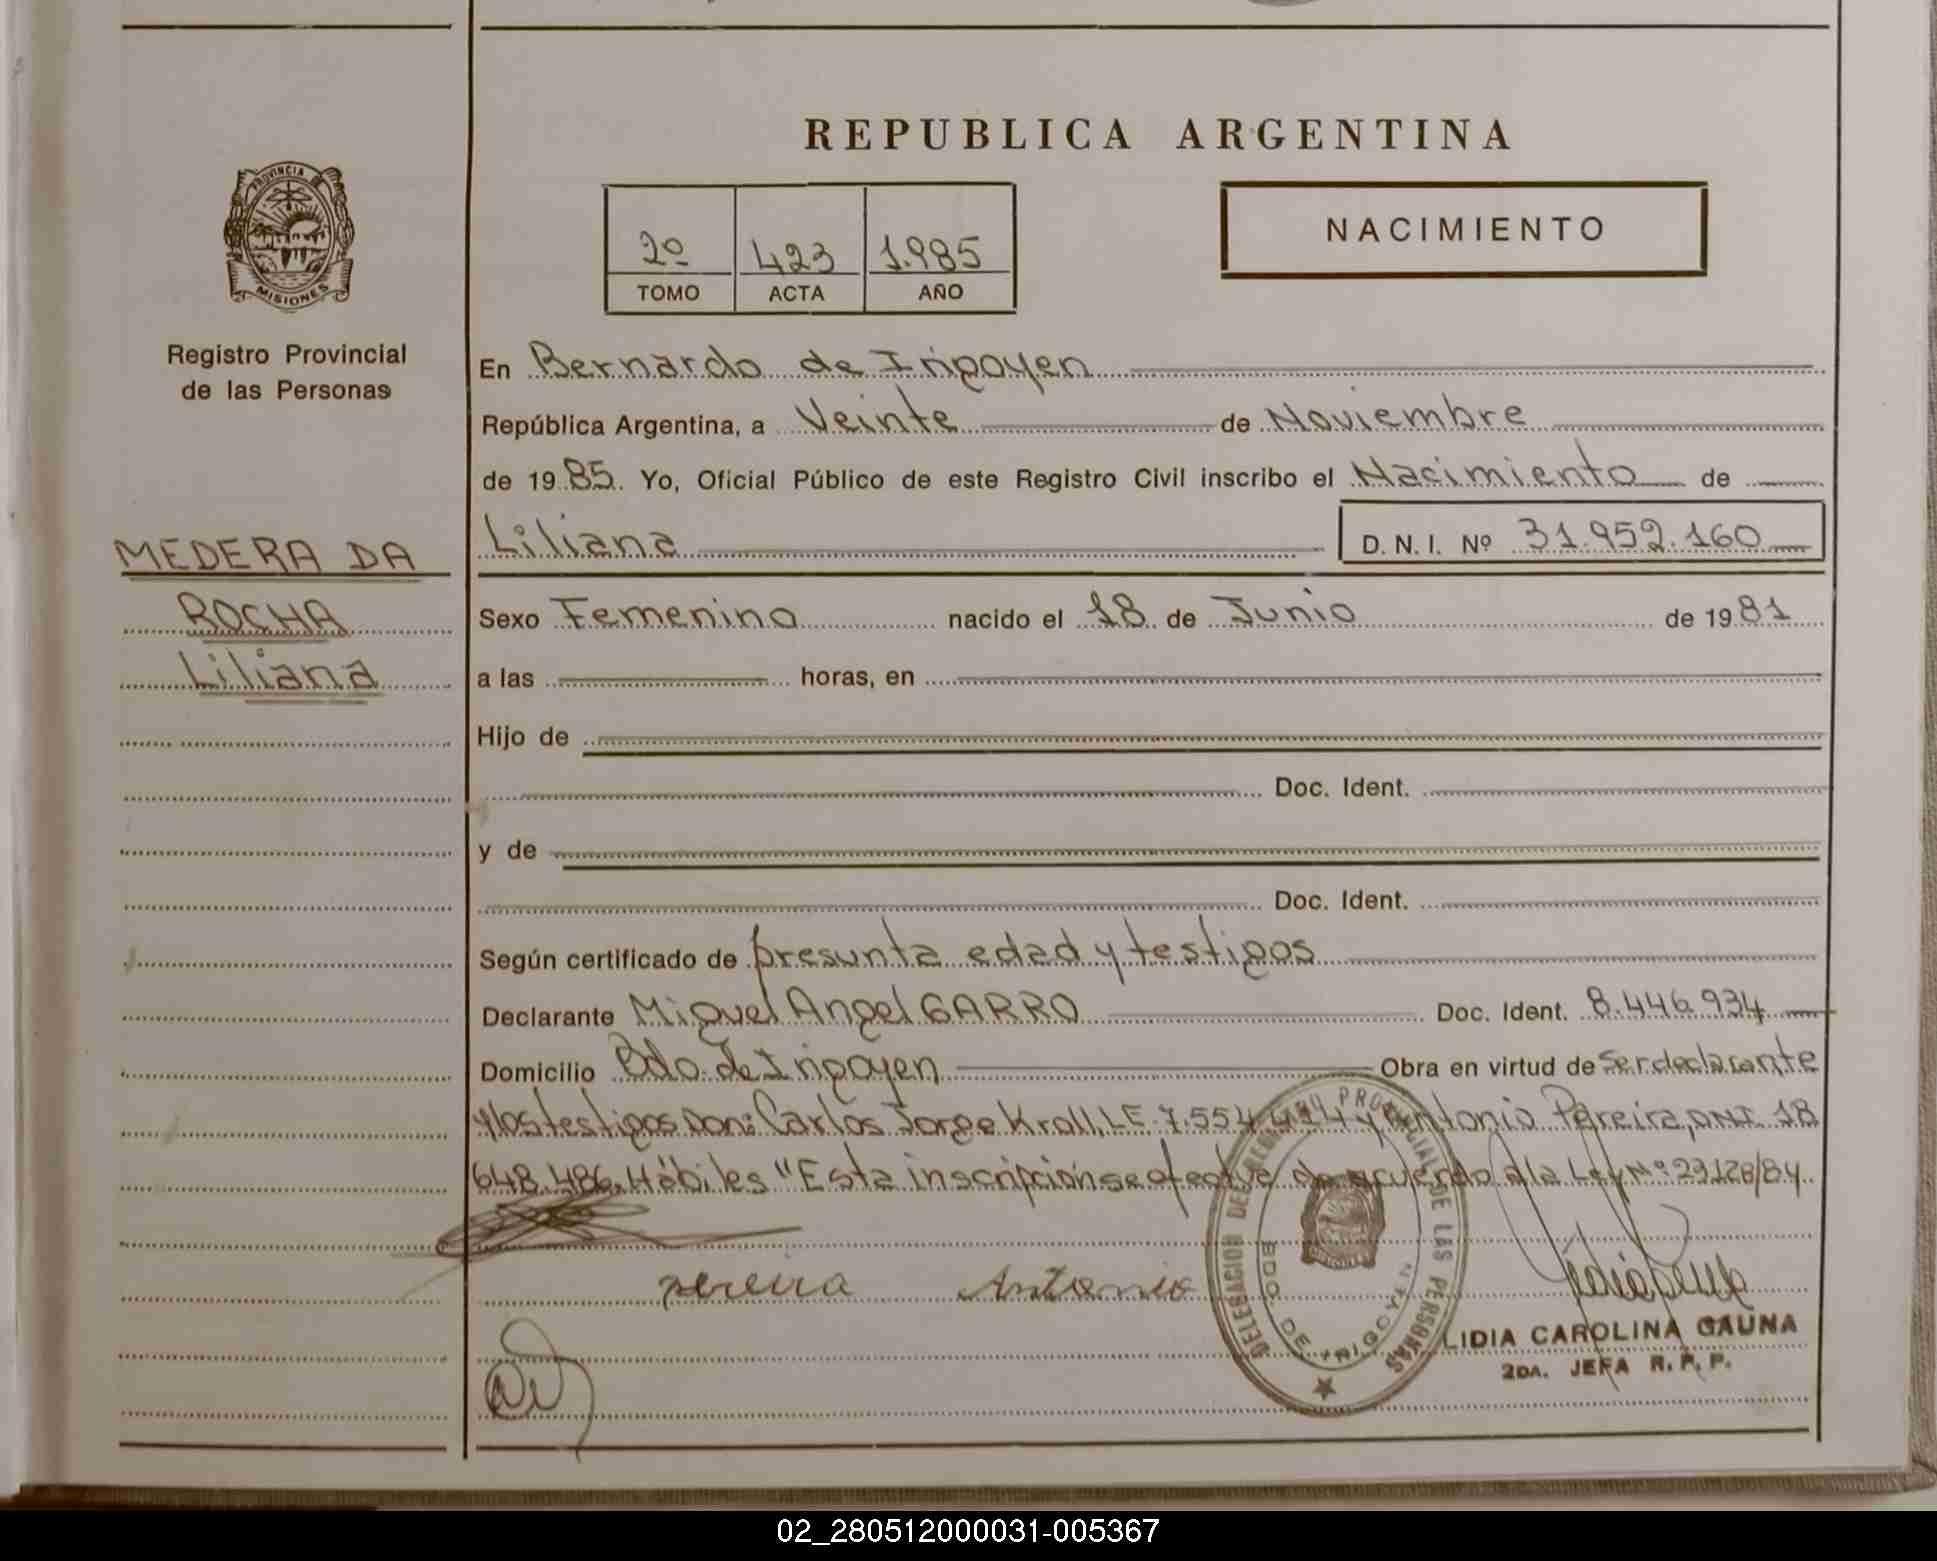 REPUBLICA ARGENTINA
PROVINCIA
MISIONES
Registro Provincial
de las Personas
2º 423 1.985
TOMO ACTA AÑO
NACIMIENTO
En Bernardo de Irigoyen
República Argentina, a Veinte de Noviembre
de 1985. Yo, Oficial Público de este Registro Civil inscribo el Nacimiento de
Liliana D. N. I. Nº 31.952.160
MEDERA DA
ROCHA
Liliana
Sexo Femenino nacido el 18 de Junio de 1981
a las horas, en
Hijo de
Doc. Ident.
y de
Doc. Ident.
Según certificado de presunta edad y testigos
Declarante Miguel Angel GARRO Doc. Ident. 8.446.934
Domicilio Bdo. de Irigoyen Obra en virtud de ser declarante
y los testigos Don: Carlos Jorge Kroll, L.E. 7.554.414 y Antonio Pereira, D.N.I. 18
648.486. Hábiles "Esta inscripción se efectúa de acuerdo a la Ley Nº 23.128/84.
Pereira Antonio
DELEGACION DEL REGISTRO PROVINCIAL DE LAS PERSONAS
BDO. DE YRIGOYEN
LIDIA CAROLINA GAUNA
2DA. JEFA R. P. P.
02_280512000031-005367